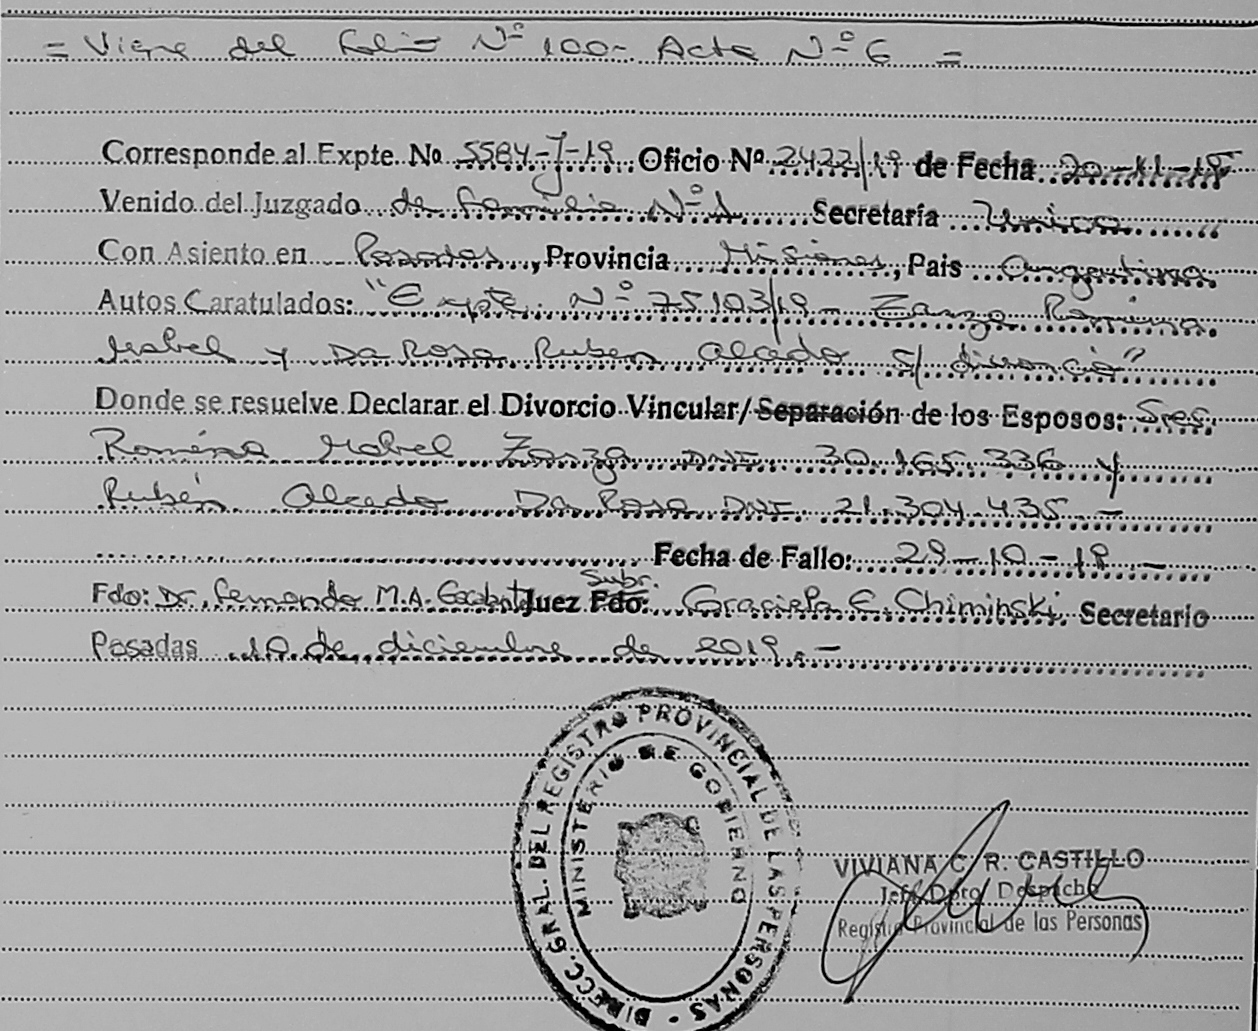 = Viene del folio Nº 100- Acta Nº 6 =
Corresponde al Expte. Nº 5584-J-19. Oficio Nº 2422/19 de Fecha 20-11-19
Venido del Juzgado de familia Nº 1 Secretaría Unica
Con Asiento en Posadas, Provincia Misiones, Pais Argentina
Autos Caratulados: "Expte. Nº 75103/19- Zarza Romina
Mabel y Da Rosa Ruben Alcedo s/ divorcio"
Donde se resuelve Declarar el Divorcio Vincular/Separación de los Esposos: Sres.
Romina Mabel Zarza DNI. 30.165.336 y
Rubén Alcedo Da Rosa DNI. 21.304.435 -
Fecha de Fallo: 29-10-19.-
Fdo: Dr. Fernando M.A. Juez Subr. Fdo: Graciela E. Chiminski Secretario
Posadas 10 de diciembre de 2019.-
DIRECC. GRAL. DEL REGISTRO PROVINCIAL DE LAS PERSONAS -
MINISTERIO DE GOBIERNO
VIVIANA C. R. CASTILLO
Jefe Dpto. Despacho
Registro Provincial de las Personas